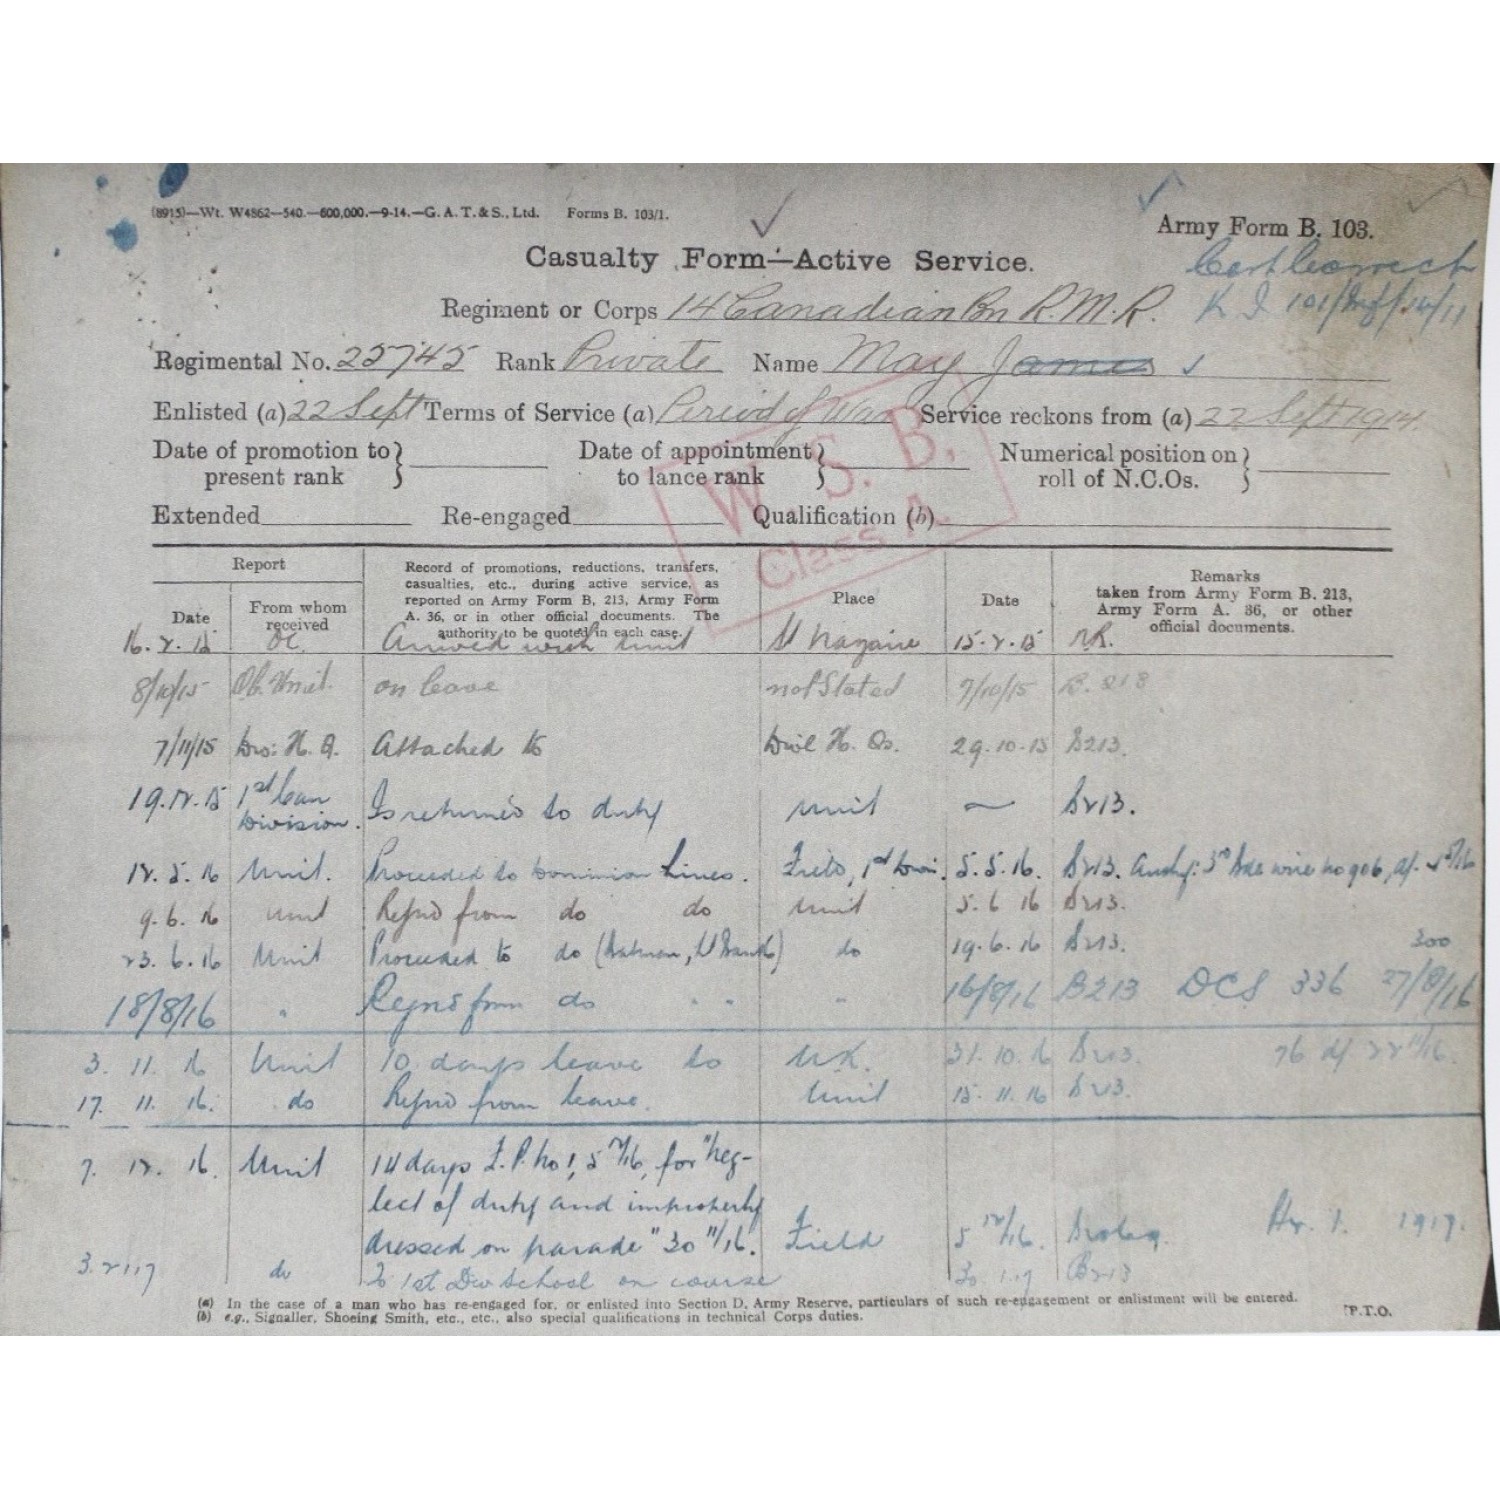 (8915)—Wt. W4862—540.—600,000.—9-14.—G. A. T. & S., Ltd. Forms B. 103/1.
Army Form B. 103.
Casualty Form—Active Service.
Regiment or Corps 14 Canadian Bn R.M.R.
Regimental No. 25745 Rank Private Name May James
Enlisted (a) 22 Sept Terms of Service (a) Period of War Service reckons from (a) 22 Sept 1914.
Date of promotion to present rank Date of appointment to lance rank Numerical position on roll of N.C.Os.
Extended Re-engaged Qualification (b)
W. S. B.
Class A
Report
Date From whom received
Record of promotions, reductions, transfers, casualties, etc., during active service, as reported on Army Form B. 213, Army Form A. 36, or in other official documents. The authority to be quoted in each case.
Place Date
Remarks taken from Army Form B. 213, Army Form A. 36, or other official documents.
16.2.15 OC. Arrived with unit St Nazaire 15.2.15 NR.
8/10/15 Ob. Unit. on leave not Stated 7/10/15 B. 213
7/11/15 Div: H. Q. Attached to Divl H. Qs. 29.10.15 B213.
19.12.15 1st Can Division. Is returned to duty unit — B213.
12.5.16 Unit. Proceeded to Dominion Lines. Field, 5.5.16. B213.
9.6.16 unit Rejnd from do do unit 5.6.16 B213.
23.6.16 Unit Proceeded to do do 19.6.16 B213. 300
18/8/16 " Rejnd from do " " " 16/8/16 B213 DCS 336 27/8/16
3.11.16 Unit 10 days leave to U.K. 31.10.16 B213. 76 df 22 11/16.
17.11.16. do Rejnd from leave. Unit 15.11.16 B213.
7.12.16. Unit 14 days F.P. No 1, 5 12/16, for "neg-
lect of duty and improperly
dressed on parade" 30 11/16. Field 5 12/16. 1917.
3.2.17 do To 1st Div School on course 30.1.17 B213
(a) In the case of a man who has re-engaged for, or enlisted into Section D, Army Reserve, particulars of such re-engagement or enlistment will be entered.
(b) e.g., Signaller, Shoeing Smith, etc., etc., also special qualifications in technical Corps duties.
P.T.O.